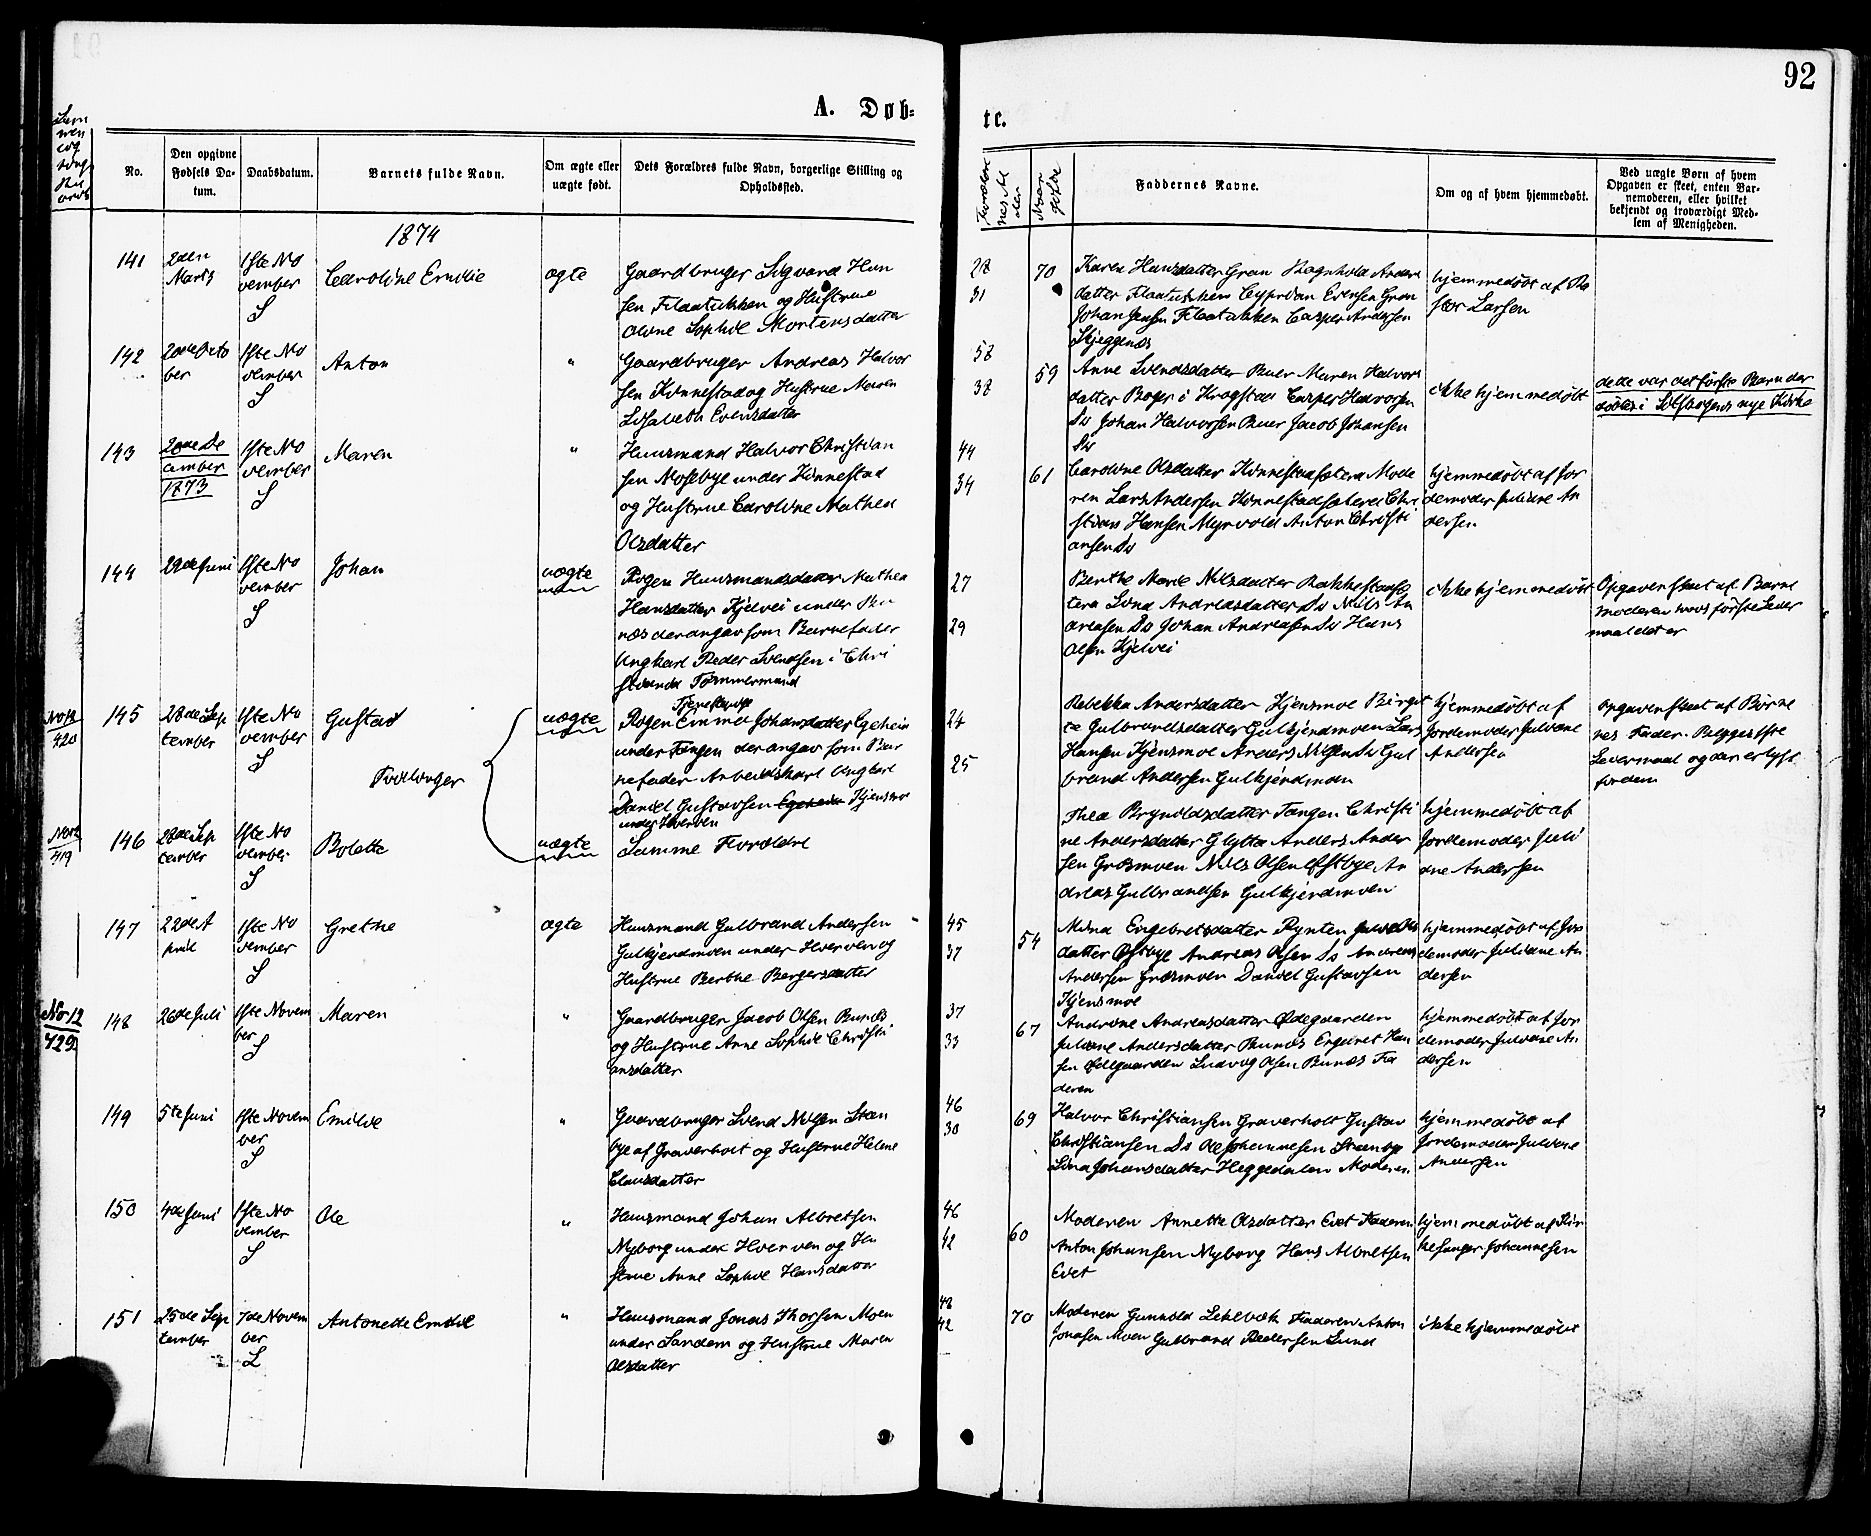 92
A. Døb-
te.
No.
Den opgivne Fødsels Da-tum.
Daabsdatum.
Barnets fulde Navn.
Om ægte eller uægte født.
Dets Forældres fulde Navn, borgerlige Stilling og Opholdssted.
Faddernes Navne.
Om og af hvem hjemmedøbt.
Ved uægte Børn af hvem
Opgaven er skeet, enten Bar-
nemoderen, eller hvilket
bekjendt og troværdigt Med-
lem af Menigheden.
1874
141
2den Marts
1ste No
vember
S
Caroline Emilie
ægte
Gaardbruger Sigvard Han
sen Flaatukken og Hustrue
Oline Sophie Mortensdatter
28
31
70
Karen Hansdatter Gran Ragnhild Anders
datter Flaatukken Cyprian Evensen Gran
Johan Jensen Flaatukken Casper Andersen
Skjeggenæs
hjemmedøbt af Pa
stor Larsen
142
1ste No
vember
S
Anton
"
Gaardbruger Andreas Halvor
sen Kinnestad og Hustrue Maren
Lisabeth Evensdatter
58
38
59
Anne Svendsdatter Buer Maren Halvors
datter Bøper i Krogstad Casper Halvorsen
Ds Johan Halvorsen Buer Jacob Johansen
Ds
ikke hjemmedøbt
dette var det første Barn der
døbtes i Siljebøgens nye Kirke
143
20de De
cember
1873
1ste No
vember
S
Maren
"
Huusmand Halvor Christian
sen Mosebye under Kinnestad
og Hustrue Caroline Mathea
Olsdatter
44
34
61
Caroline Olsdatter Kinnestadsætera Mode
ren Lars Andersen Kinnestadsæteren Chri
stian Hansen Myrvold Anton Christi
ansen Ds
hjemmedøbt af Jor
demoder Juliane An
dersen
144
29de Juni
1ste No
vember
S
Johan
uægte
Pigen Huusmandsdatter Mathea
Hansdatter Kjelvei under Bu
næs der angav som Barnefader
Ungkarl Peder Svendsen i Chri
stiania Tømmermand
27
29
Berthe Marie Nilsdatter Rakkestadsæ
tera Lina Andreasdatter Ds Nils An
dreasen Ds Johan Andreasen Ds Hans
Olsen Kjelvei
ikke hjemmedøbt
Opgaven skeet af Barne
moderen hvis første Leier
maal det er
No 12
420
145
28de Sep
tember
1ste No
vember
S
Gustav
Tvillinger
uægte
Tjenestepige
Pigen Emma Johansdatter Egeheim
under Tangen der angav som Bar
nefader Arbeidskarl Ungkarl
Daniel Gustavsen Egeheim Kjensmo
under Hverven
24
25
Rebekka Andersdatter Kjensmoe Birgit
te Gulbrandsdatter Gulkjendmoen Lars
Hansen Kjensmoe Anders Nilsen Ds Gul
brand Andersen Gulkjendmoen
hjemmedøbt af
Jordemoder Juliane
Andersen
Opgaven skeet af Barne
nes Fader. Begges 1ste
Leiermaal og der er lyst
for dem
No 12
419
146
28de Sep
tember
1ste No
vember
S
Bolette
uægte
Samme Forældre
Thea Brynildsdatter Tangen Christi
ne Andersdatter Glytta Anders Ander
sen Græsmoen Nils Olsen Østbye An
dreas Gulbrandsen Gulkjendmoen
hjemmedøbt af
Jordemoder Juli
ane Andersen
147
22de A
pril
1ste No
vember
S
Grethe
ægte
Huusmand Gulbrand Andersen
Gulkjendmoen under Hverven og
Hustrue Berthe Bergersdatter
45
37
54
Mina Engebretsdatter Rynten Julie Ols
datter Østbye Andreas Olsen Ds Andreas
Andersen Græsmoen Daniel Gustavsen
Kjensmoe
hjemmedøbt af Jor
demoder Juliane An
dersen
No 12
429
148
26de Juli
1ste Novem
ber
S
Maren
"
Gaardbruger Jacob Olsen Bunæs
og Hustrue Anne Sophie Christi
ansdatter
37
33
67
Andrine Andreasdatter Ødegaarden
Juliane Andersdatter Bunæs Engebret Han
sen Ødegaarden Ludvig Olsen Bunæs Fa
deren
hjemmedøbt af Jor
demoder Juliane An
dersen
149
5te Juni
1ste Novem
ber
S
Emilie
"
Gaardbruger Svend Nilsen Steen
bye af Graverholt og Hustrue Helene
Clausdatter
46
30
69
Halvor Christiansen Graverholt Gustav
Christiansen Ds Ole Johannesen Steenby
Lina Johansdatter Heggedalen Moderen
hjemmedøbt af
Jordemoder Juliane
Andersen
150
4de Juni
1ste No
vember
S
Ole
"
Huusmand Johan Albretsen
Nyborg under Hverven og Hu
strue Anne Sophie Hansdatter
46
42
60
Moderen Annette Olsdatter Evet Faderen
Anton Johansen Nyborg Hans Albretsen
Evet
hjemmedøbt af Kir
kesanger Johannesen
151
25de Sep
tember
7de Novem
ber
L
Antonette Emilie
"
Huusmand Jonas Thorsen Moen
under Sandem og Hustrue Maren
Olsdatter
48
42
70
Moderen Gunnild Anton
Jonasen Moen Gulbrand Pedersen Lund
ikke hjemmedøbt